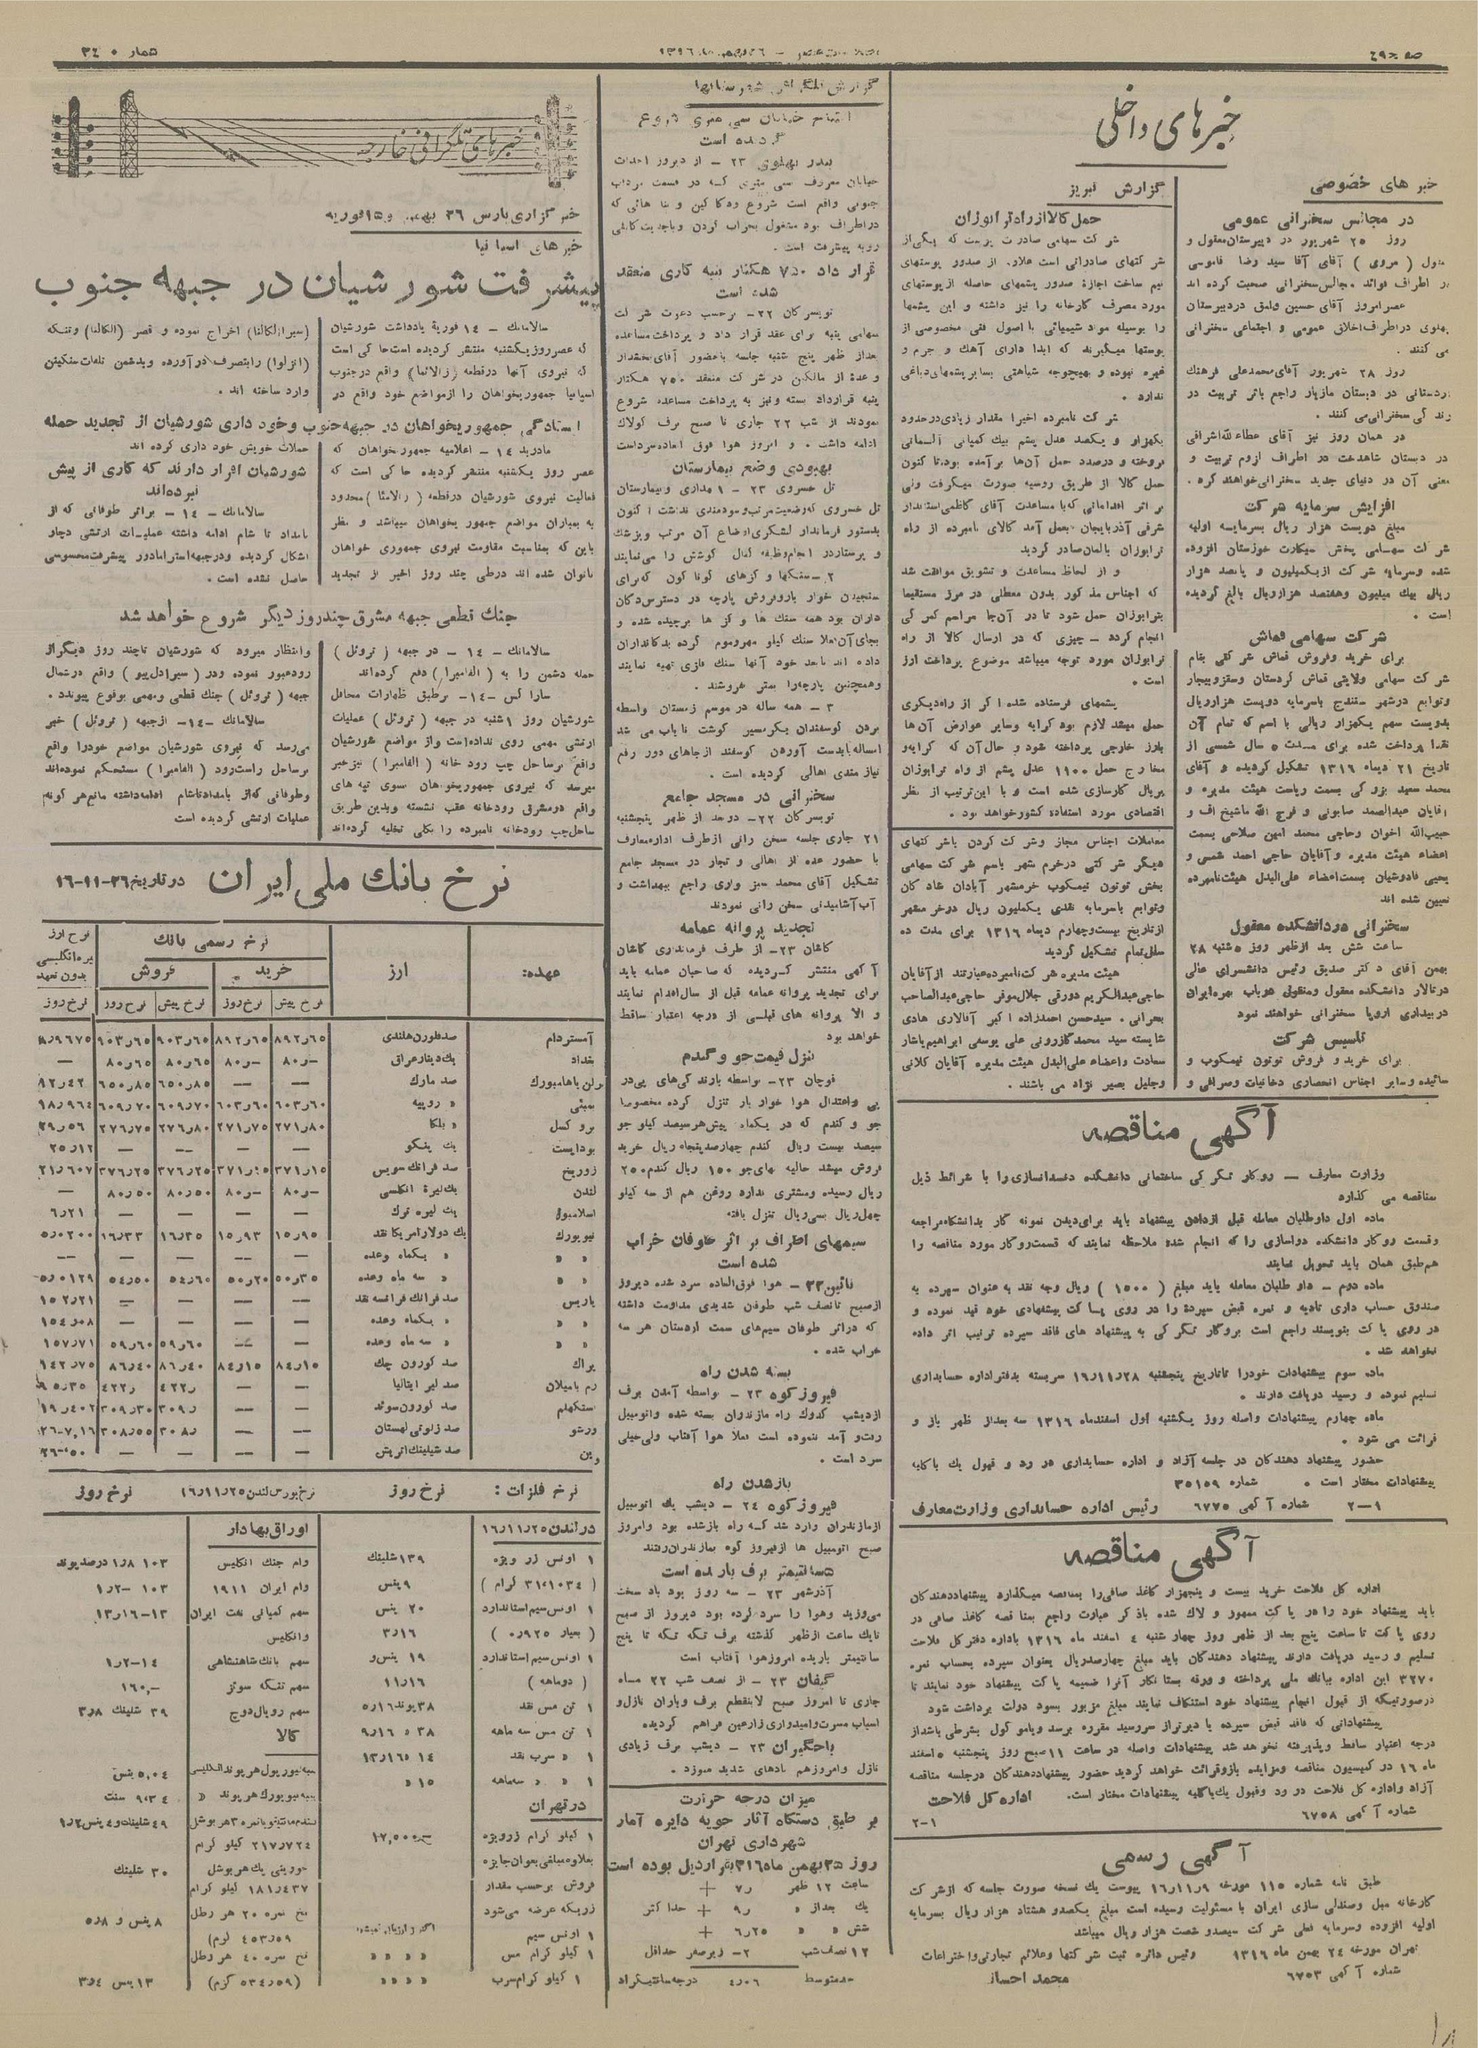 خبرهای داخلی
خبر های خصوصی
در مجالس سخنرانی عمومی
روز ۲۵ شهریور در دبیرستان معقول و
منقول (مروی) آقای آقا سید رضا قاموسی
در اطراف فوائد مجالس سخنرانی صحبت کرده اند
عصر امروز آقای حسین وامق در دبیرستان
پهلوی در اطراف اخلاق عمومی و اجتماعی سخنرانی
می کنند .
روز ۲۸ شهریور آقای محمد علی فرهنگ
در دبستان مازیار راجع باثر تربیت در
سخنرانی می کنند .
در همان روز نیز آقای عطاءالله اشراقی
در دبستان شاهدخت در اطراف لزوم تربیت و
معنی آن در دنیای جدید سخنرانی خواهند کرد .
افزایش سرمایه شرکت
مبلغ دویست هزار ریال بسرمایه اولیه
شرکت سهامی پخش سیگارت خوزستان افزوده
شده و سرمایه شرکت از یکمیلیون و پانصد هزار
ریال بیک میلیون و هفتصد هزار ریال بالغ گردیده
است .
شرکت سهامی قماش
برای خرید و فروش قماش شرکتی بنام
شرکت سهامی ولایتی قماش کردستان و سقز و بیجار
و توابع در شهر سنندج باسرمایه دویست هزار ریال
بدویست سهم یکهزار ریالی با اسم که تمام آن
نقداً پرداخت شده برای مدت ۵ سال شمسی از
تاریخ ۲۱ دیماه ۱۳۱۶ تشکیل گردیده و آقای
محمد سعید بزرگی بسمت ریاست هیئت مدیره و
آقایان عبدالصمد صابونی و فرج الله ماشیخ اف و
حبیب الله اخوان و حاجی محمد امین صلاحی بسمت
اعضاء هیئت مدیره و آقایان حاجی احمد شمسی و
یحیی قادوشیان بسمت اعضاء علی البدل هیئت نامبرده
تعیین شده اند
سخنرانی در دانشکده معقول
ساعت شش بعد از ظهر روز ۵ شنبه ۲۸
بهمن آقای دکتر صدیق رئیس دانشسرای عالی
در تالار دانشکده معقول و منقول در باب بهره ایران
در بیداری اروپا سخنرانی خواهند نمود
تاسیس شرکت
برای خرید و فروش توتون تیمکوب و
سائیده و سایر اجناس انحصاری دخانیات و صرافی و
گزارش تبریز
حمل کالا از راه ترابوزان
شرکت سهامی صادرات پوست که یکی از
شرکتهای صادراتی است علاوه از صدور پوستهای
نیم ساخت اجازه صدور پشمهای حاصله از پوستهای
مورد مصرف کارخانه را نیز داشته و این پشمها
را بوسیله مواد شیمیائی با اصول فنی مخصوصی از
پوستها میگیرند که ابدا دارای آهک و جرم و
غیره نبوده و بهیچوجه شباهتی بسایر پشمهای دباغی
ندارد .
شرکت نامبرده اخیرا مقدار زیادی در حدود
یکهزار و یکصد عدل پشم بیک کمپانی آلمانی
فروخته و درصدد حمل آن‌ها برآمده بود تا کنون
حمل کالا از طریق روسیه صورت میگرفت ولی
بر اثر اقداماتی که با مساعدت آقای کاظمی استاندار
شرقی آذربایجان بعمل آمد کالای نامبرده از راه
ترابوزان بآلمان صادر گردید
و از لحاظ مساعدت و تشویق موافقت شد
که اجناس مذکور بدون معطلی در مرز مستقیما
بترابوزان حمل شود تا در آن‌جا مراسم گمرکی
انجام گردد - چیزی که در ارسال کالا از راه
ترابوزان مورد توجه میباشد موضوع پرداخت ارز
است .
پشمهای فرستاده شده اگر از راه دیگری
حمل میشد لازم بود کرایه و سایر عوارض آن‌ها
بارز خارجی پرداخته شود و حال آن که کرایه و
مخارج حمل ۱۱۰۰ عدل پشم از راه ترابوزان
بریال کارسازی شده است و با این ترتیب از نظر
اقتصادی مورد استفاده کشور خواهد بود .
معاملات اجناس مجاز و شرکت کردن با شرکتهای
دیگر شرکتی در خرم شهر باسم شرکت سهامی
پخش توتون تیمکوب خرمشهر آبادان شادکان
و توابع باسرمایه نقدی یکملیون ریال در خرمشهر
از تاریخ بیست و چهارم دیماه ۱۳۱۶ برای مدت ده
سال تمام تشکیل گردید
هیئت مدیره شرکت نامبرده عبارتند از آقایان
حاجی عبدالکریم دورقی جلال موقر حاجی عبدالصاحب
بحرانی . سید حسن احمدزاده اکبر آقالاری هادی
شایسته سید محمد گازرونی علی یوسفی ابراهیم پاشار
سعادت و اعضاء علی البدل هیئت مدیره آقایان کلانی
و جلیل بصیر نژاد می باشند .
آگهی مناقصه
وزارت معارف - روکار تگرگی ساختمانی دانشکده دندانسازی را با شرائط ذیل
بمناقصه می گذارد
ماده اول داوطلبان معامله قبل از دادن پیشنهاد باید برای دیدن نمونه کار بدانشگاه مراجعه
و قسمت روکار دانشکده دواسازی را که انجام شده ملاحظه نمایند که قسمت روکار مورد مناقصه را
هم طبق همان باید تحویل نمایند
ماده دوم - داوطلبان معامله باید مبلغ (۱۵۰۰) ریال وجه نقد به عنوان سپرده به
صندوق حساب داری تادیه و نمره قبض سپرده را در روی پاکت پیشنهادی خود قید نموده و
در روی پاکت بنویسند راجع است بروکار تگرگی به پیشنهاد های فاقد سپرده ترتیب اثر داده
نخواهد شد .
ماده سوم پیشنهادات خود را تا تاریخ پنجشنبه ۱۶٫۱۱٫۲۸ سربسته بدفتر اداره حسابداری
تسلیم نموده و رسید دریافت دارند .
ماده چهارم پیشنهادات واصله روز یکشنبه اول اسفند ماه ۱۳۱۶ سه بعد از ظهر باز و
قرائت می شود .
حضور پیشنهاد دهندگان در جلسه آزاد و اداره حسابداری در رد و قبول یک یا کلیه
پیشنهادات مختار است . شماره ۳۵۱۵۹
۲-۱ شماره آگهی ۶۷۷۵ رئیس اداره حسابداری وزارت معارف
آگهی مناقصه
اداره کل فلاحت خرید بیست و پنجهزار کاغذ صافی را بمناقصه میگذارد پیشنهاد دهندگان
باید پیشنهاد خود را در پاکت ممهور و لاک شده باذکر عبارت راجع بمناقصه کاغذ صافی در
روی پاکت تا ساعت پنج بعد از ظهر روز چهارشنبه ۴ اسفند ماه ۱۳۱۶ باداره دفتر کل فلاحت
تسلیم و رسید دریافت دارند پیشنهاد دهندگان باید مبلغ چهارصد ریال بعنوان سپرده بحساب نمره
۳۲۷۰ این اداره ببانک ملی پرداخته و ورقه بستانکار آنرا ضمیمه پاکت پیشنهاد خود نمایند تا
درصورتیکه از قبول انجام پیشنهاد خود استنکاف نمایند مبلغ مزبور بسود دولت برداشت شود
پیشنهاداتی که فاقد قبض سپرده یا دیرتر از سررسید مقرره برسد و یا موکول بشرطی باشد از
درجه اعتبار ساقط و پذیرفته نخواهد شد پیشنهادات واصله در ساعت ۱۱ صبح روز پنجشنبه ۵ اسفند
ماه ۱۶ در کمیسیون مناقصه و مزایده باز و قرائت خواهد گردید حضور پیشنهاد دهندگان در جلسه مناقصه
آزاد و اداره کل فلاحت در رد و قبول یک یا کلیه پیشنهادات مختار است. اداره کل فلاحت
شماره آگهی ۶۷۵۸ ۲-۱
آگهی رسمی
طبق نامه شماره ۱۱۵ مورخه ۱۶٫۱۱٫۹ پیوست یک نسخه صورت جلسه که از شرکت
کارخانه مبل و صندلی سازی ایران با مسئولیت رسیده است مبلغ یکصد و هشتاد هزار ریال بسرمایه
اولیه افزوده و سرمایه فعلی شرکت سیصد و شصت هزار ریال میباشد
تهران مورخه ۲۴ بهمن ماه ۱۳۱۶ رئیس دائره ثبت شرکتها و علائم تجارتی و اختراعات
شماره آگهی ۶۷۵۳ محمد احسان
گزارش تلگرافی شهرستانها
اتمام خیابان سی متری شروع
گردیده است
بندر پهلوی ۲۳ - از دیروز احداث
خیابان معروف سی متری که در قسمت مرداب
جنوبی واقع است شروع و دکاکین و بنا هائی که
در اطراف بود مشغول بخراب کردن و باجدیت کاملی
رو به پیشرفت است .
قرار داد ۷۵۰ هکتار پنبه کاری منعقد
شده است
تویسرکان ۲۲- برحسب دعوت شرکت
سهامی پنبه برای عقد قرار داد و پرداخت مساعده
بعد از ظهر پنج شنبه جلسه باحضور آقای بخشدار
و عده از مالکین در شرکت منعقد ۷۵۰ هکتار
پنبه قرارداد بسته و نیز به پرداخت مساعده شروع
نمودند از شب ۲۲ جاری تا صبح برف کولاک
ادامه داشت . و امروز هوا فوق العاده سرد است
بهبودی وضع بیمارستان
تل خسروی ۲۳ - بهداری و بیمارستان
تل خسروی که وضعیت مرتب و سودمندی نداشت اکنون
بدستور فرماندار لشگری اوضاع آن مرتب و پزشک
و پرستار در انجام وظیفه کمال کوشش را می نمایند
۲ - سنگها و گزهای گوناگون که برای
سنجیدن خوار بار و فروش پارچه در دسترس دکان
داران بود همه سنگ ها و گز ها برچیده شده و
بجای آن عملا سنگ کیلو مرسوم کرده بدکانداران
داده اند تا بعد خود آنها سنگ فلزی تهیه نمایند
و همچنین پارچه را بمتر فروشند .
۳ - همه ساله در موسم زمستان واسطه
بردن گوسفندان بگرمسیر گوشت نایاب می شد
امساله بابدست آوردن گوسفند از جاهای دور رفع
نیاز مندی اهالی گردیده است .
سخنرانی در مسجد جامع
تویسرکان ۲۲- دو بعد از ظهر پنجشنبه
۲۱ جاری جلسه سخن رانی از طرف اداره معارف
با حضور عده از اهالی و تجار در مسجد جامع
تشکیل آقای محمد سبزواری راجع ببهداشت و
آب آشامیدنی سخن رانی نمودند
تجدید پروانه عمامه
کاشان ۲۳- از طرف فرمانداری کاشان
آگهی منتشر گردیده که صاحبان عمامه باید
برای تجدید پروانه عمامه قبل از سال اقدام نمایند
و الا پروانه های قبلی از درجه اعتبار ساقط
خواهد بود
تنزل قیمت جو و گندم
قوچان ۲۳- بواسطه بارندگی‌های پی در
پی و اعتدال هوا خوار بار تنزل کرده مخصوصا
جو و گندم که در یکماه پیش هر سیصد کیلو جو
سیصد بیست ریال گندم چهارصد پنجاه ریال خرید
فروش میشد حالیه بهای جو ۱۵۰ ریال گندم ۲۵۰
ریال رسیده و مشتری ندارد روغن هم از سه کیلو
چهل ریال بسی ریال تنزل یافته
سیمهای اطراف بر اثر طوفان خراب
شده است
نائین ۲۳- هوا فوق العاده سرد شده دیروز
از صبح تا نصف شب طوفان شدیدی مداومت داشته
که در اثر طوفان سیم‌های سمت اردستان هر سه
خراب شده .
بسته شدن راه
فیروزکوه ۲۳ - بواسطه آمدن برف
از دیشب گدوک راه مازندران بسته شده و اتومبیل
رفت و آمد ننموده است فعلا هوا آفتاب ولی خیلی
سرد است .
بازشدن راه
فیروزکوه ۲۴ - دیشب یک اتومبیل
از مازندران وارد شد که راه باز شده بود و امروز
صبح اتومبیل ها از فیروز کوه بمازندران رفتند
۵ سانتیمتر برف باریده است
آذرشهر ۲۳ - سه روز بود باد سخت
می‌وزید و هوا را سرد کرده بود دیروز از صبح
تا یک ساعت از ظهر گذشته برف تکه تکه تا پنج
سانتیمتر باریده امروز هوا آفتاب است
گیفان ۲۳ - از نصف شب ۲۲ ماه
جاری تا امروز صبح لاینقطع برف و باران نازل و
اسباب مسرت و امیدواری زارعین فراهم گردیده
باجگیران ۲۳ - دیشب برف زیادی
نازل و امروز هم بادهای شدید میوزد .
میزان درجه حرارت
بر طبق دستگاه آثار جویه دایره آمار
شهرداری تهران
روز ۲۵ بهمن ماه ۳۱۶ بقرار ذیل بوده است
ساعت ۱۲ ظهر ۷٫ +
یک بعد از » ۹٫ + حد اکثر
شش » » ۶٫۲۵ +
۱۲ نصف شب ۲- زیر صفر حداقل
حد متوسط ۴٫۰۶ درجه سانتیگراد
خبرهای تلگرافی خارجه
خبرگزاری پارس ۲۶ بهمن و ۱۵ فوریه
خبر های اسپانیا
پیشرفت شورشیان در جبهه جنوب
سالامانک - ۱۴ فوریه یادداشت شورشیان
که عصر روز یکشنبه منتشر گردیده است حاکی است
که نیروی آنها در قطعه (زالامآ) واقع در جنوب
اسپانیا جمهوریخواهان را از مواضع خود واقع در
(سیرالکالنا) اخراج نموده و قصر (الکالنا) و تنگه
(انزلوا) را بتصرف در آورده و بدشمن تلفات سنگین
وارد ساخته اند .
ایستادگی جمهوریخواهان در جبهه جنوب و خود داری شورشیان از تجدید حمله
مادرید ۱۴ - اعلامیه جمهور خواهان که
عصر روز یکشنبه منتشر گردیده حاکی است که
فعالیت نیروی شورشیان در قطعه (زالامئا) محدود
به بمباران مواضع جمهور یخواهان میباشد و نظر
باین که بمناسبت مقاومت نیروی جمهوری خواهان
ناتوان شده اند در طی چند روز اخیر از تجدید
حملات خویش خود داری کرده اند
شورشیان اقرار دارند که کاری از پیش
نبرده‌اند
سالامانک - ۱۴ - براثر طوفانی که از
بامداد تا شام ادامه داشته عملیات ارتشی دچار
اشکال گردیده و در جبهه استرامادور پیشرفت محسوسی
حاصل نشده است .
جنک قطعی جبهه مشرق چند روز دیگر شروع خواهد شد
سالامانک - ۱۴ - در جبهه (تروئل)
حمله دشمن را به (الفامبرا) دفع کرده‌اند
ساراگس - ۱۴- برطبق ظهارات محافل
شورشیان روز ۱ شنبه در جبهه (تروئل) عملیات
ارتشی مهمی روی نداده است و از مواضع شورشیان
واقع بر ساحل چپ رود خانه (الفامبرا) نیز خبر
میرسد که نیروی جمهوریخواهان سوی تپه های
واقع در مشرق رودخانه عقب نشسته و بدین طریق
ساحل چپ رودخانه نامبرده را بکلی تخلیه کرده‌اند
و انتظار میرود که شورشیان تا چند روز دیگر از
رود عبور نموده و در (سیرادل پبو) واقع در شمال
جبهه (تروئل) جنک قطعی و مهمی بوقوع پیوندد .
سالامانک - ۱۴- از جبهه (تروئل) خبر
می‌رسد که نیروی شورشیان مواضع خود را واقع
بر ساحل راست رود (الفامبرا) مستحکم نموده‌اند
و طوفانی که از بامداد تا شام ادامه داشته مانع هر گونه
عملیات ارتشی گردیده است
نرخ بانک ملی ایران در تاریخ ۲۶-۱۱-۱۶
عهده: ارز نرخ رسمی بانک نرخ ارز
خرید فروش لیره انگلیسی
بدون تعهد
نرخ پیش نرخ روز نرخ پیش نرخ روز نرخ روز
آمستردام صد فلورن هلندی ۸۹۲٫۶۵ ۸۹۲٫۶۵ ۹۰۳٫۶۵ ۹۰۳٫۶۵ ۸٫۹۶۷۵
بغداد یک دینار عراق ۸۰٫- ۸۰٫- ۸۰٫۶۵ ۸۰٫۶۵ —
برلن یا هامبورگ صد مارک — — ۶۵۰٫۸۵ ۶۵۰٫۸۵
بمبئی » روپیه ۶۰۳٫۶۰ ۶۰۳٫۶۰ ۶۰۹٫۷۰ ۶۰۹٫۷۰
بروکسل » بلگا ۲۷۱٫۸۰ ۲۷۱٫۷۵ ۲۷۶٫۸۰ ۲۷۶٫۷۵ ۲۹٫۵۶
بوداپست یک پنگو — — — — ۲۵٫۱۲
زوریخ صد فرانک سویس ۳۷۱٫۱۵ ۳۷۱٫۱۵ ۳۷۶٫۲۵ ۳۷۶٫۲۵ ۲۱٫۶۰۷
لندن یک لیرهٔ انگلیسی ۸۰٫- ۸۰٫- ۸۰٫۵۰ ۸۰٫۵۰ —
اسلامبول یک لیره ترک — — — — ۶٫۲۱
نیویورک یک دولار امریکا نقد ۱۵٫۹۵ ۱۵٫۹۳ ۱۶٫۳۵ ۱۶٫۳۳ ۵٫۰۲۰۰
» » یکماه وعده — — — — —
» » سه ماه وعده ۵۰٫۳۵ ۵۰٫۲۰ ۵۴٫۶۰ ۵۴٫۵۰ ۵٫۰۱۲۹
پاریس صد فرانک فرانسه نقد — — — — ۱۵۲٫۲۱
» » یکماه وعده — — — — ۱۵۴٫۰۸
» » سه ماه وعده — — ۵۹٫۶۰ ۵۹٫۶۰ ۱۵۷٫۷۱
پراک صد کورون چک ۸۴٫۱۵ ۸۴٫۱۵ ۸۶٫۴۰ ۸۶٫۴۰ ۱۴۲٫۷۵
رم یا میلان صد لیر ایتالیا — — ۴۲۲٫ ۴۲۲٫ ۹۵٫۳۵
استکهلم صد کورون سوئد — — ۳۰۹٫ ۳۰۹٫۳۰ ۱۹٫۴۰۲
ورشو صد زلوتی لهستان — — ۳۰۸٫ ۳۰۸٫۵۵
وین صد شیلینک اتریش — — — —
نرخ فلزات : نرخ روز نرخ بورس لندن ۱۶٫۱۱٫۲۵ نرخ روز
در لندن ۱۶٫۱۱٫۲۵ اوراق بهادار
۱ اونس زر ویژه ۱۳۹ شلینک
(۳۱٫۱۰۳۴ گرام) ۹ پنس
۱ اونس سیم استاندارد ۲۰ پنس
(بعیار ۰٫۹۲۵) ۳٫۱۶
۱ اونس سیم استاندارد ۱۹ پنس و
(دوماهه) ۱۱٫۱۶
۱ تن مس نقد ۳۸ پوند ۵٫۱۶
۱ تن مس سه ماهه ۳۸ » ۹٫۱۶
۱ » سرب نقد ۱۴ » ۱۳٫۱۶
۱ » » سه ماهه ۱۵ »
در تهران
۱ کیلو گرام زر ویژه ۱۷٫۵۰۰
بعلاوه مبلغی بعنوان جایزه
فروش برحسب مقدار
زریکه عرضه می‌شود
۱ اونس سیم
۱ کیلو گرام مس » » » »
۱ کیلو گرام سرب » » » »
وام جنک انگلیس ۱۰۳ ۱٫۸ درصد پوند
وام ایران ۱۹۱۱ ۱۰۳ -۱٫۲
سهم کمپانی نفت ایران
و انگلیس
سهم بانک شاهنشاهی ۱۴-۱٫۲
سهم تنگه سوئز ۱۶۰٫-
سهم رویال دوچ ۳۹ شلینک ۳٫۸
کالا
پنبه لیورپول هر پوند انگلیسی ۵٫۰۴ پنس
پنبه نیویورک هر پوند » ۹٫۳۴ سنت
گندم مانیتوبا نمره ۳ هر بوشل ۴۹ شلینک و ۴ پنس ۱٫۲
۲۱۷٫۷۲۴ کیلو گرام
جو زمینی یک هر بوشل ۳۰ شلینک
۱۸۱٫۴۳۷ کیلو گرام
نخ نمره ۲۰ هر رطل ۸ پنس و ۵٫۸
۴۵۳٫۵۹ گرم)
نخ نمره ۴۰ هر رطل
(۵۳۴٫۵۹ گرم) ۱۳ پنس ۳٫۴